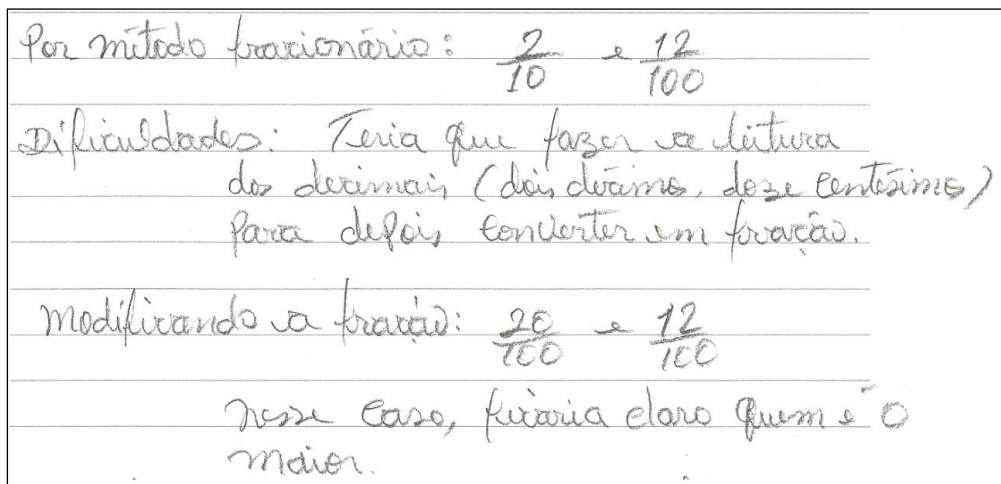 Por método fracionário: 2/10 e 12/100
Dificuldades: Teria que fazer a leitura
dos decimais (dois décimos, doze centésimos)
para depois converter em fração.
Modificando a fração: 20/100 e 12/100
nesse caso, ficaria claro quem é o
maior.